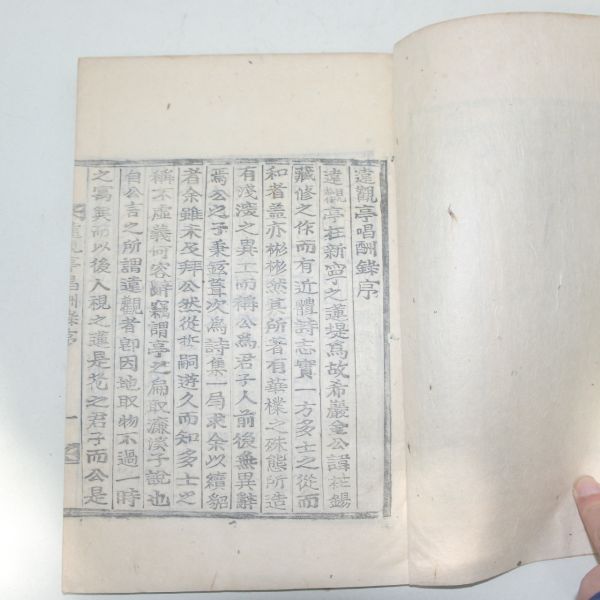 蓮觀亭唱酬錄序
蓮觀亭在新寧之蓮堤爲故希巖金公諱在錫
藏修之作而有近體詩志實一方多士之從而
和者盖亦彬彬然其所著有華樸之殊態所造
有淺深之異工而稱公爲君子人前後無異辭
焉公之子秉鉉普次爲詩集一局求余以續貂
者余雖未及拜公然從哲嗣遊久而知多士之
稱不虛義何容辭竊謂亭之扁取濂溪子說也
自公言之所謂蓮觀者卽因地取物不過一時
之寓興而以後人視之蓮是花之君子而公是
蓮觀亭唱酬錄序 一